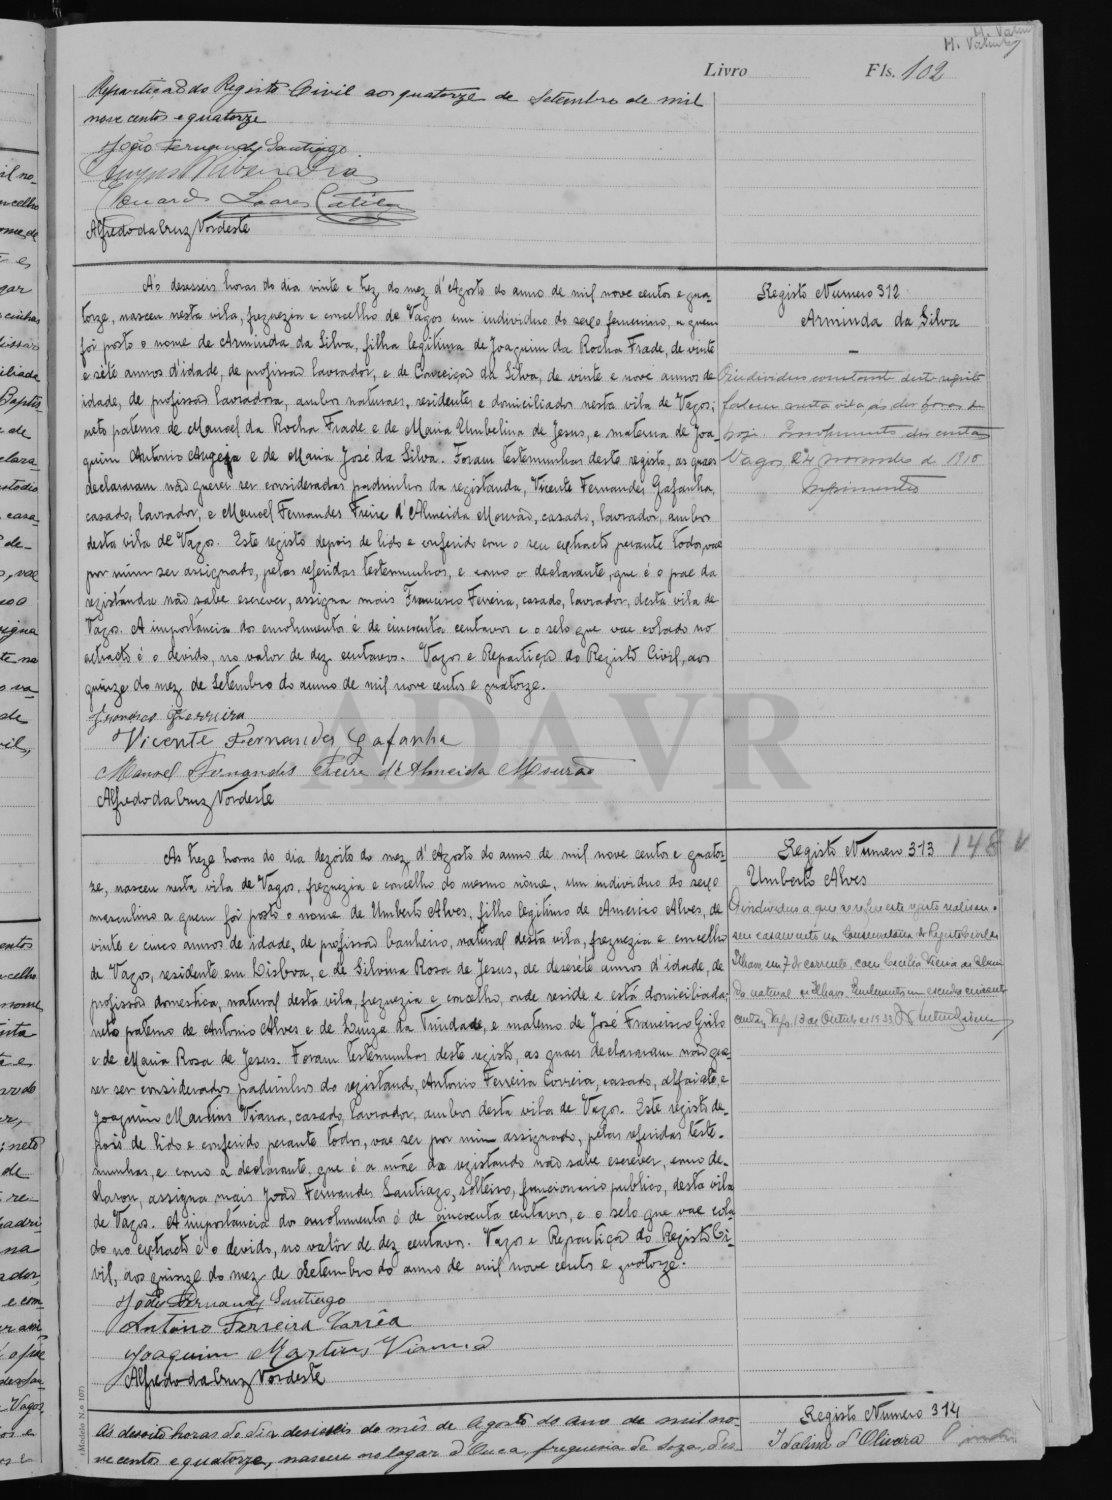 H. Valente
Livro Fls. 102
Repartição do Registo Civil aos quatorze de Setembro de mil
nove centos e quatorze
João Fernandes Santiago
Alfredo da Cruz Nordeste
Registo Numero 312
Arminda da Silva
Ás desesseis horas do dia vinte e trez do mez d'Agosto do anno de mil nove centos e qua-
torze, nasceu nesta vila, freguezia e concelho de Vagos um individuo do sexo femenino, a quem
foi posto o nome de Arminda da Silva, filha legitima de Joaquim da Rocha Frade, de vinte
e séte annos d'idade, de profissão lavrador, e de Conceição da Silva, de vinte e nove annos de
idade, de profissão lavradora, ambos naturaes, residentes e domiciliados nesta vila de Vagos;
neta paterna de Manoel da Rocha Frade e de Maria Umbelina de Jesus, e materna de Joa-
quim Antonio Angeja e de Maria José da Silva. Foram testemunhas deste registo, as quaes
declararam não querer ser consideradas padrinhos da registanda, Vicente Fernandes Gafanha,
casado, lavrador, e Manoel Fernandes Freire d'Almeida Mourão, casado, lavrador, ambos
desta vila de Vagos. Este registo depois de lido e conferido com o seu extracto perante todos, vae
por mim ser assignado, pelas referidas testemunhas, e como o declarante, que é o pae da
registanda não sabe escrever, assigna mais Francisco Ferreira, casado, lavrador, desta vila de
Vagos. A importância dos emolumentos é de cincoenta centavos e o selo que vae colado no
extracto é o devido, no valor de dez centavos. Vagos e Repartição do Registo Civil, aos
quinze do mez de Setembro do anno de mil nove centos e quatorze.
Francisco Ferreira
Vicente Fernandes Gafanha
Manoel Fernandes Freire d'Almeida Mourão
Alfredo da Cruz Nordeste
O individuo constante deste registo
faleceu nesta vila ás dez horas de
hoje. Emolumentos dez centavos
Vagos 24 novembro de
ADAVR
Registo Numero 313 148
Umberto Alves
Ás treze horas do dia dezoito do mez d'Agosto do anno de mil nove centos e quator-
ze, nasceu nesta vila de Vagos, freguezia e concelho do mesmo nome, um individuo do sexo
masculino a quem foi posto o nome de Umberto Alves, filho legitimo de Americo Alves, de
vinte e cinco annos de idade, de profissão banheiro, natural desta vila, freguezia e concelho
de Vagos, residente em Lisboa, e de Silvina Rosa de Jesus, de deseséte annos d'idade, de
profissão domestica, natural desta vila, freguezia e concelho, onde reside e está domiciliada;
neto paterno de Antonio Alves e de Luiza da Trindade, e materno de José Francisco Grilo
e de Maria Rosa de Jesus. Foram testemunhas deste registo, as quaes declararam não que-
rer ser considerados padrinhos do registando, Antonio Ferreira Correia, casado, alfaiate, e
Joaquim Martins Viana, casado, lavrador, ambos desta vila de Vagos. Este registo de-
pois de lido e conferido perante todos, vae ser por mim assignado, pelas referidas teste-
munhas, e como a declarante, que é a mãe do registando não sabe escrever, como de-
clarou, assigna mais João Fernandes Santiago, solteiro, funcionario publico, desta vila
de Vagos. A importância dos emolumentos é de cincoenta centavos, e o selo que vae cola-
do no extracto é o devido, no valôr de dez centavos. Vagos e Repartição do Registo Ci-
vil, aos quinze do mez de Setembro do anno de mil nove centos e quatorze.
João Fernandes Santiago
Antonio Ferreira Corrêa
Joaquim Martins Vianna
Alfredo da Cruz Nordeste
O individuo a que se refere este registo realisou o
seu casamento na Conservatoria do Registo Civil de
Ilhavo, em 7 do corrente, com Cecilia Vieira
natural de Ilhavo. Emolumentos um escudo e cincoenta
centavos. Vagos, 13 de Outubro de 1933
Modelo N.o 107)
Registo Numero 314
Idalina d'Oliveira
Ás desoito horas do dia desesseis do mês de Agosto do ano de mil no-
ve centos e quatorze, nasceu no logar d'Ouca, freguezia de Soza, des-